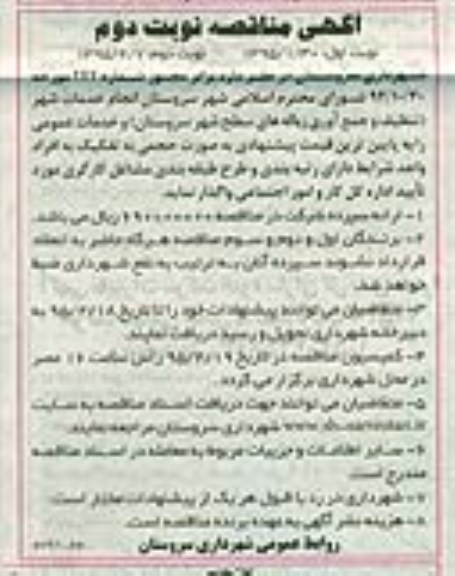 آگهی مناقصه نوبت دوم
نوبت اول: ۱۳۹۵/۱/۳۰ نوبت دوم: ۱۳۹۵/۲/۷
شهرداری سروستان در نظر دارد برابر مجوز شماره مورخه
شورای محترم اسلامی شهر سروستان انجام خدمات شهر
(تنظیف و جمع آوری زباله های سطح شهر سروستان) و خدمات عمومی
را به پایین ترین قیمت پیشنهادی به صورت حجمی به تفکیک به افراد
واجد شرایط دارای رتبه بندی و طرح طبقه بندی مشاغل کارگری مورد
تأیید اداره کل کار و امور اجتماعی واگذار نماید.
۱- ارائه سپرده شرکت در مناقصه ریال می باشد.
۲- برندگان اول و دوم و سوم مناقصه هرگاه حاضر به انعقاد
قرارداد نشوند سپرده آنان به ترتیب به نفع شهرداری ضبط
خواهد شد.
۳- متقاضیان می توانند پیشنهادات خود را تا تاریخ ۹۵/۲/۱۸ به
دبیرخانه شهرداری تحویل و رسید دریافت نمایند.
۴- کمیسیون مناقصه در تاریخ ۹۵/۲/۱۹ راس ساعت عصر
در محل شهرداری برگزار می گردد.
۵- متقاضیان می توانند جهت دریافت اسناد مناقصه به سایت
شهرداری سروستان مراجعه نمایند.
۶- سایر اطلاعات و جزییات مربوط به معامله در اسناد مناقصه
مندرج است.
۷- شهرداری در رد یا قبول هر یک از پیشنهادات مختار است.
۸- هزینه نشر آگهی به عهده برنده مناقصه است.
روابط عمومی شهرداری سروستان